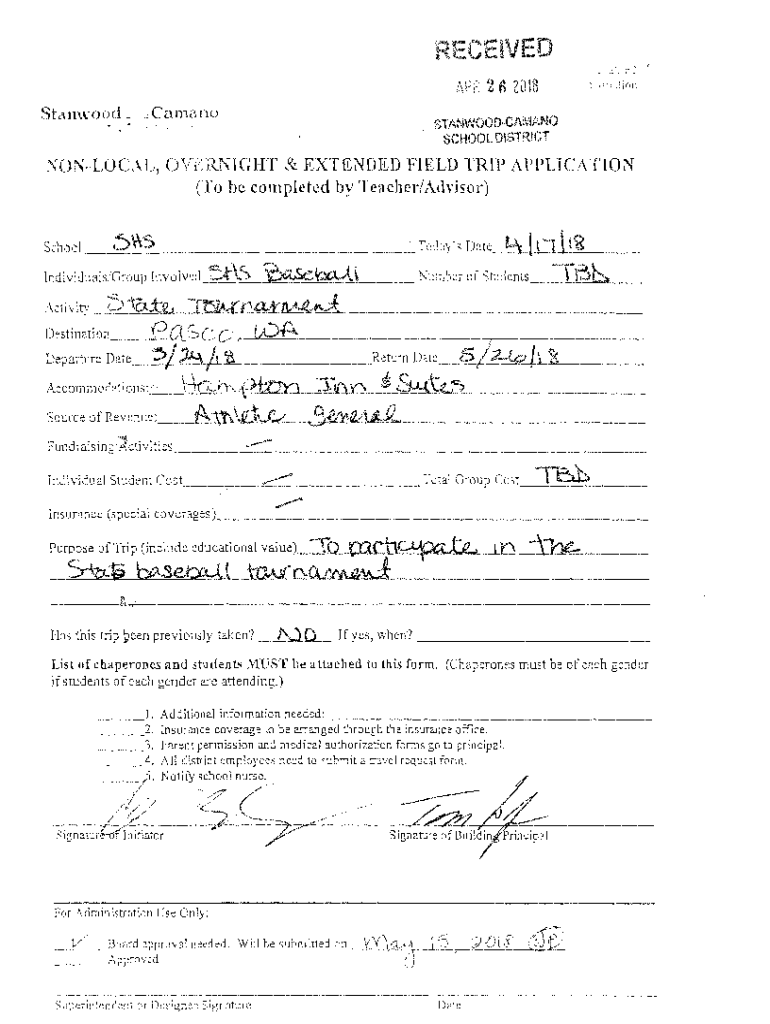 RECEIVED
APR 26 2018
STANWOOD-CAMANO
SCHOOL DISTRICT
Stanwood Camano
NON-LOCAL, OVERNIGHT & EXTENDED FIELD TRIP APPLICATION
(To be completed by Teacher/Advisor)
School SHS Today's Date 4/17/18
Individuals/Group Involved SHS Baseball Number of Students TBD
Activity State Tournament
Destination Pasco, WA
Departure Date 5/24/18 Return Date 5/26/18
Accommodations: Hampton Inn & Suites
Source of Revenue: Athletic general
Fundraising Activities —
Individual Student Cost — Total Group Cost TBD
Insurance (special coverages) —
Purpose of Trip (include educational value) To participate in the
State baseball tournament
Has this trip been previously taken? NO If yes, when?
List of chaperones and students MUST be attached to this form. (Chaperones must be of each gender
if students of each gender are attending.)
1. Additional information needed:
2. Insurance coverage to be arranged through the insurance office.
3. Parent permission and medical authorization forms go to principal.
4. All district employees need to submit a travel request form.
5. Notify school nurse.
Tom
Signature of Initiator Signature of Building Principal
For Administration Use Only:
✓ Board approval needed. Will be submitted on May 15, 2018
Approved
Superintendent or Designee Signature Date